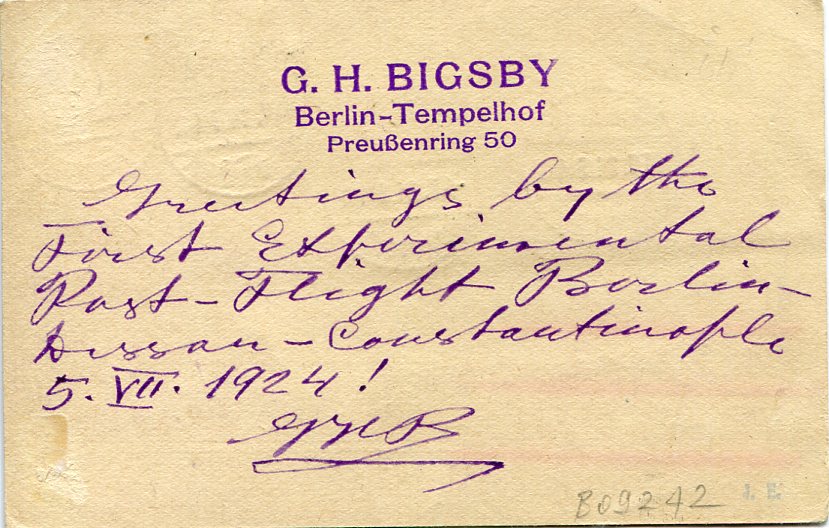 G. H. BIGSBY
Berlin-Tempelhof
Preußenring 50
Greetings by the
First Experimental
Post-Flight Berlin-
Dessau-Constantinople
5. VII. 1924!
GHB
B09242 J. E.